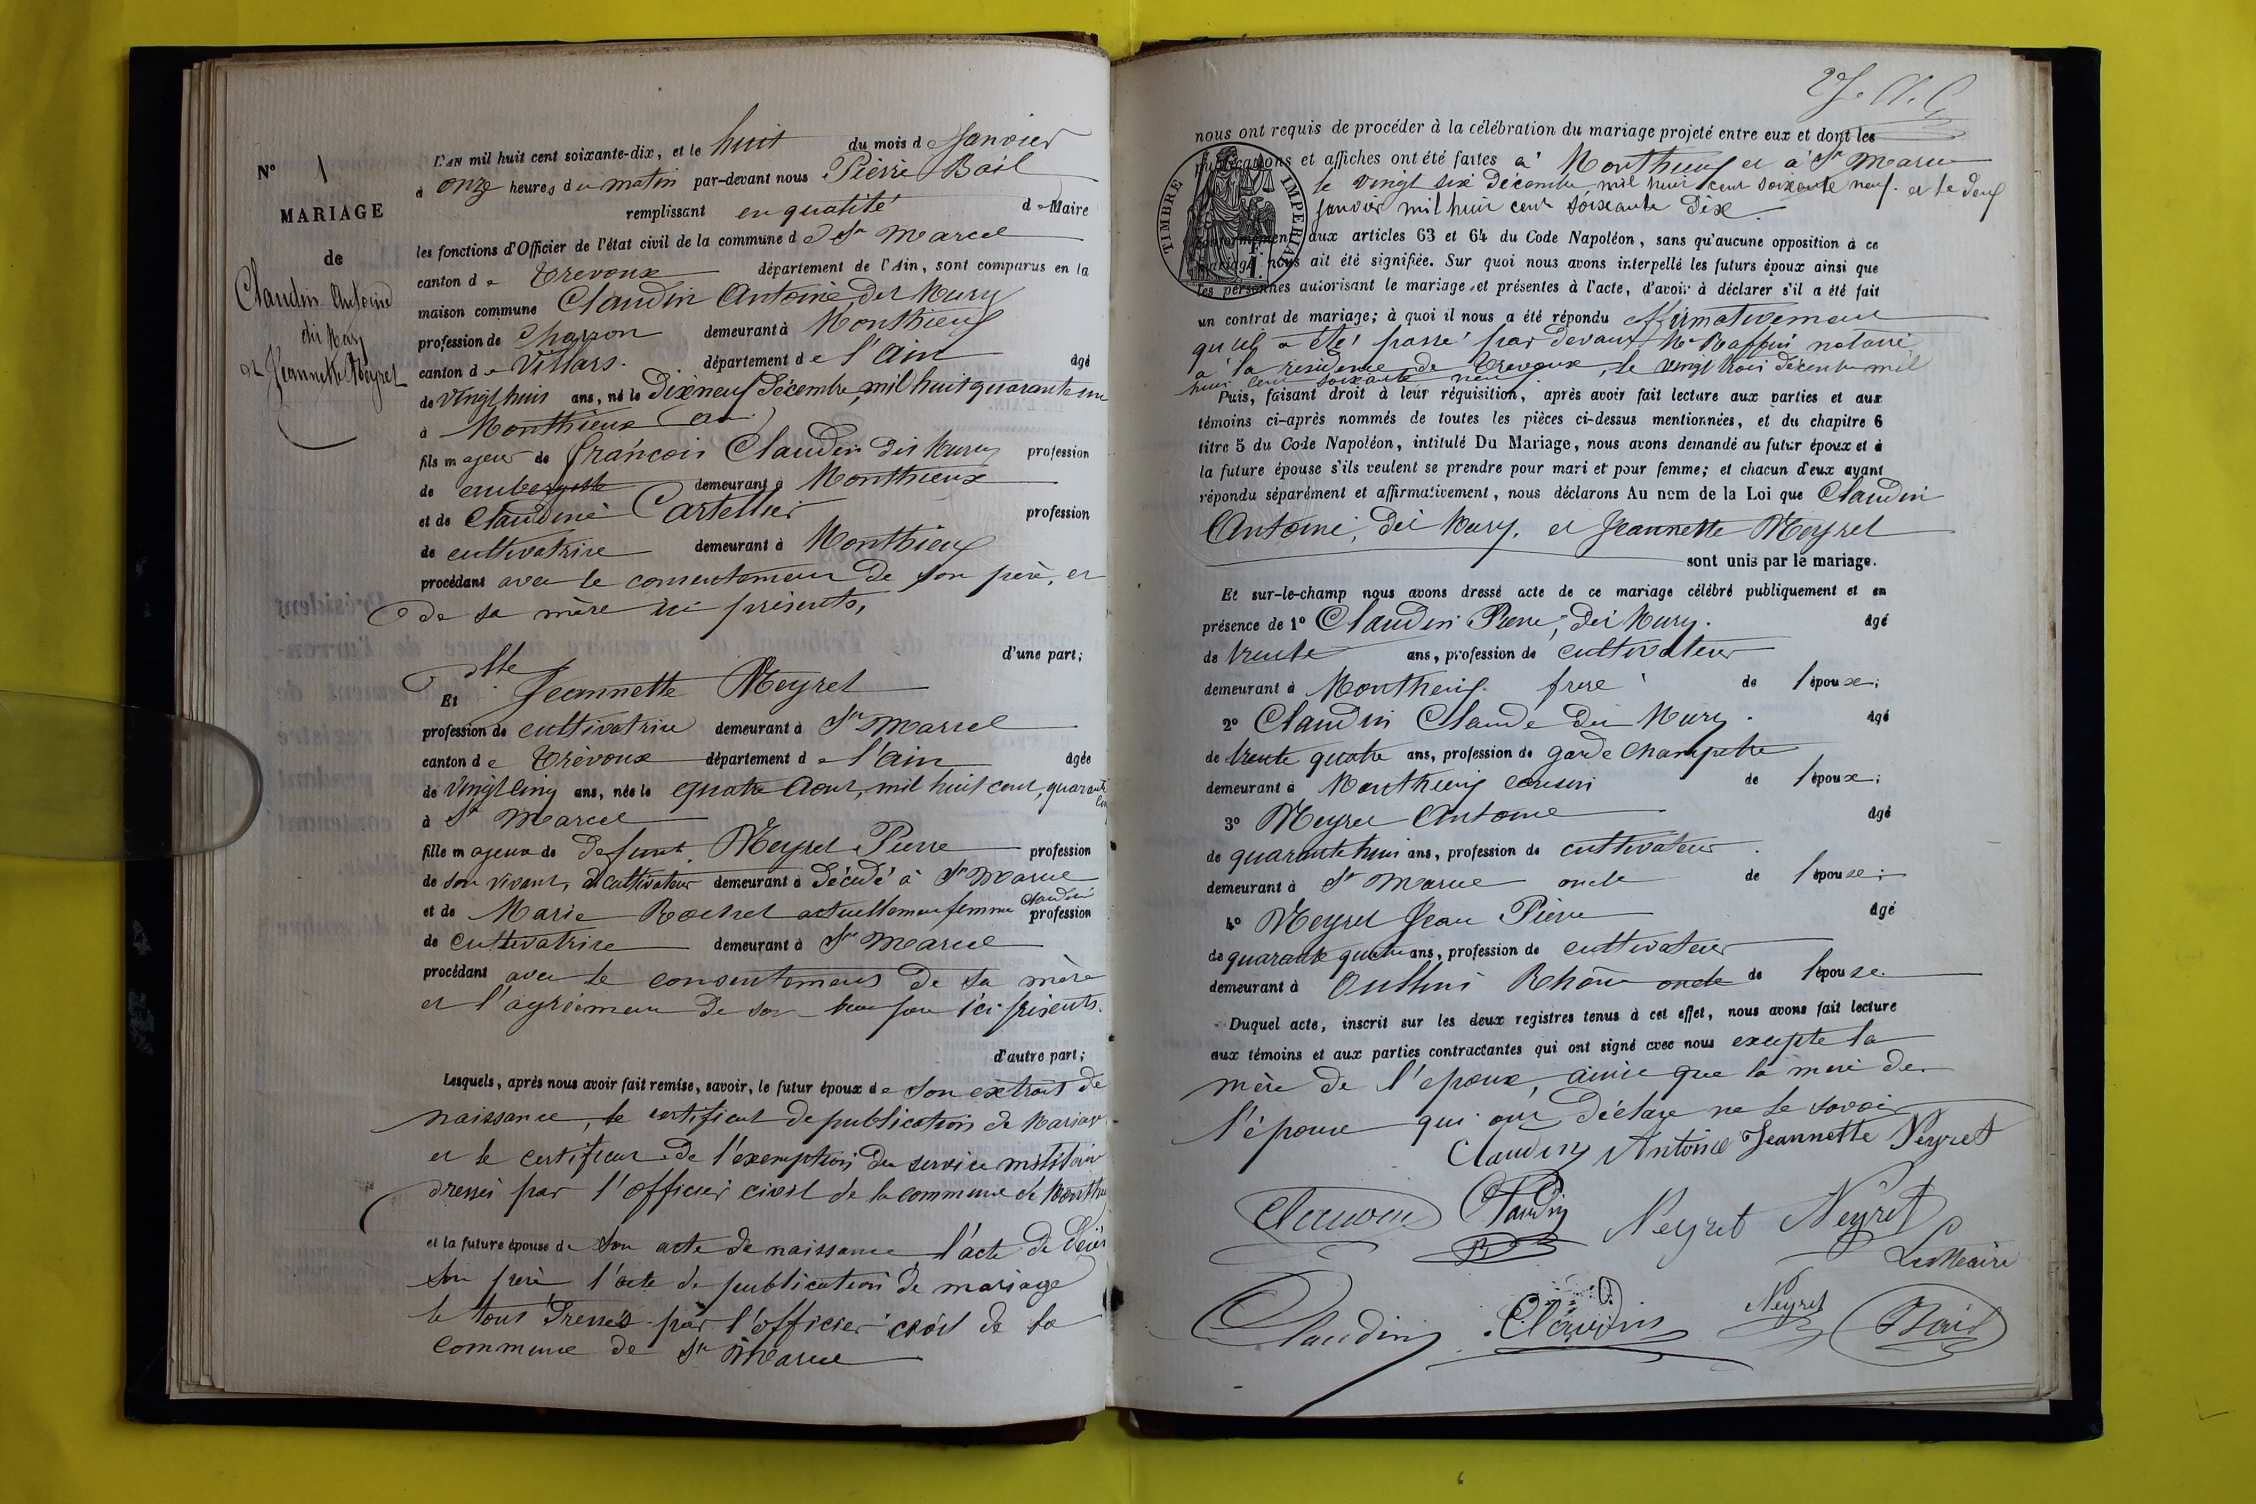 N° 1
MARIAGE
de
Claudin Antoine
dit Mury
et Jeannette Meyret
L'AN mil huit cent soixante-dix, et le huit du mois de Janvier
à onze heures du matin par-devant nous Pierre Bail
remplissant en qualité de Maire
les fonctions d'Officier de l'état civil de la commune de St Marcel
canton de Trevoux département de l'Ain, sont comparus en la
maison commune Claudin Antoine, dit Mury
profession de charron demeurant à Monthieux
canton de Villars. département de l'Ain âgé
de vingt huit ans, né le Dix neuf Décembre, mil huit quarante un
à Monthieux
fils majeur de francois Claudin dit Mury profession
de aubergiste demeurant à Monthieux
et de Claudine Cartellier profession
de cultivatrice demeurant à Monthieux
procédant avec le consentement de son père, et
de sa mère ici présents,
d'une part;
Et Dlle Jeannette Meyret
profession de cultivatrice demeurant à St Marcel
canton de Trévoux département de l'Ain âgée
de vingt cinq ans, née le quatre Aout, mil huit cent, quarante
à St Marcel
fille majeure de defunt Meyret Pierre profession
de son vivant, cultivateur demeurant à décédé à St Marcel
et de Marie Rochet actuellement femme Claudin profession
de cultivatrice demeurant à St Marcel
procédant avec le consentement de sa mère
et l'agrément de son beau père ici présents.
d'autre part;
Lesquels, après nous avoir fait remise, savoir, le futur époux de son extrait de
naissance, le certificat de publication de Mariage
et le certificat de l'exemption du service militaire
dressés par l'officier civil de la commune de Monthieux
et la future épouse de son acte de naissance, l'acte de décès
son père l'acte de publication de mariage
le tout dressés par l'officier civil de la
commune de St Marcel
nous ont requis de procéder à la célébration du mariage projeté entre eux et dont les
publications et affiches ont été faites à Monthieux et à St Marcel
le vingt six décembre, mil huit cent soixante neuf. et le deux
janvier mil huit cent soixante dix
TIMBRE IMPERIAL
conformément aux articles 63 et 64 du Code Napoléon, sans qu'aucune opposition à ce
mariage nous ait été signifiée. Sur quoi nous avons interpellé les futurs époux ainsi que
les personnes autorisant le mariage et présentes à l'acte, d'avoir à déclarer s'il a été fait
un contrat de mariage; à quoi il nous a été répondu affirmativement
qu'il a été passé par devant Me Raffin notaire
à la résidence de Trevoux, le vingt trois décembre mil
huit cent soixante neuf
Puis, faisant droit à leur réquisition, après avoir fait lecture aux parties et aux
témoins ci-après nommés de toutes les pièces ci-dessus mentionnées, et du chapitre 6
titre 5 du Code Napoléon, intitulé Du Mariage, nous avons demandé au futur époux et à
la future épouse s'ils veulent se prendre pour mari et pour femme; et chacun d'eux ayant
répondu séparément et affirmativement, nous déclarons Au nom de la Loi que Claudin
Antoine, dit Mury. et Jeannette Meyret
sont unis par le mariage.
Et sur-le-champ nous avons dressé acte de ce mariage célébré publiquement et en
présence de 1° Claudin Pierre, dit Mury. âgé
de trente ans, profession de cultivateur
demeurant à Monthieux frère de l'époux;
2° Claudin Claude dit Mury. âgé
de trente quatre ans, profession de garde champetre
demeurant à Monthieux cousin de l'époux;
3° Meyret Antoine âgé
de quarante huit ans, profession de cultivateur
demeurant à St Marcel oncle de l'épouse;
4° Meyret Jean Pierre âgé
de quarante quatre ans, profession de cultivateur
demeurant à Oullins Rhône oncle de l'épouse
Duquel acte, inscrit sur les deux registres tenus à cet effet, nous avons fait lecture
aux témoins et aux parties contractantes qui ont signé avec nous excepte la
mère de l'époux, ainsi que la mère de
l'épouse qui ont déclare ne le savoir
Claudin Antoine Jeannette Neyret
Claudin Claudin Neyret Neyret
Le Maire
Claudin Claudin Neyret Bail